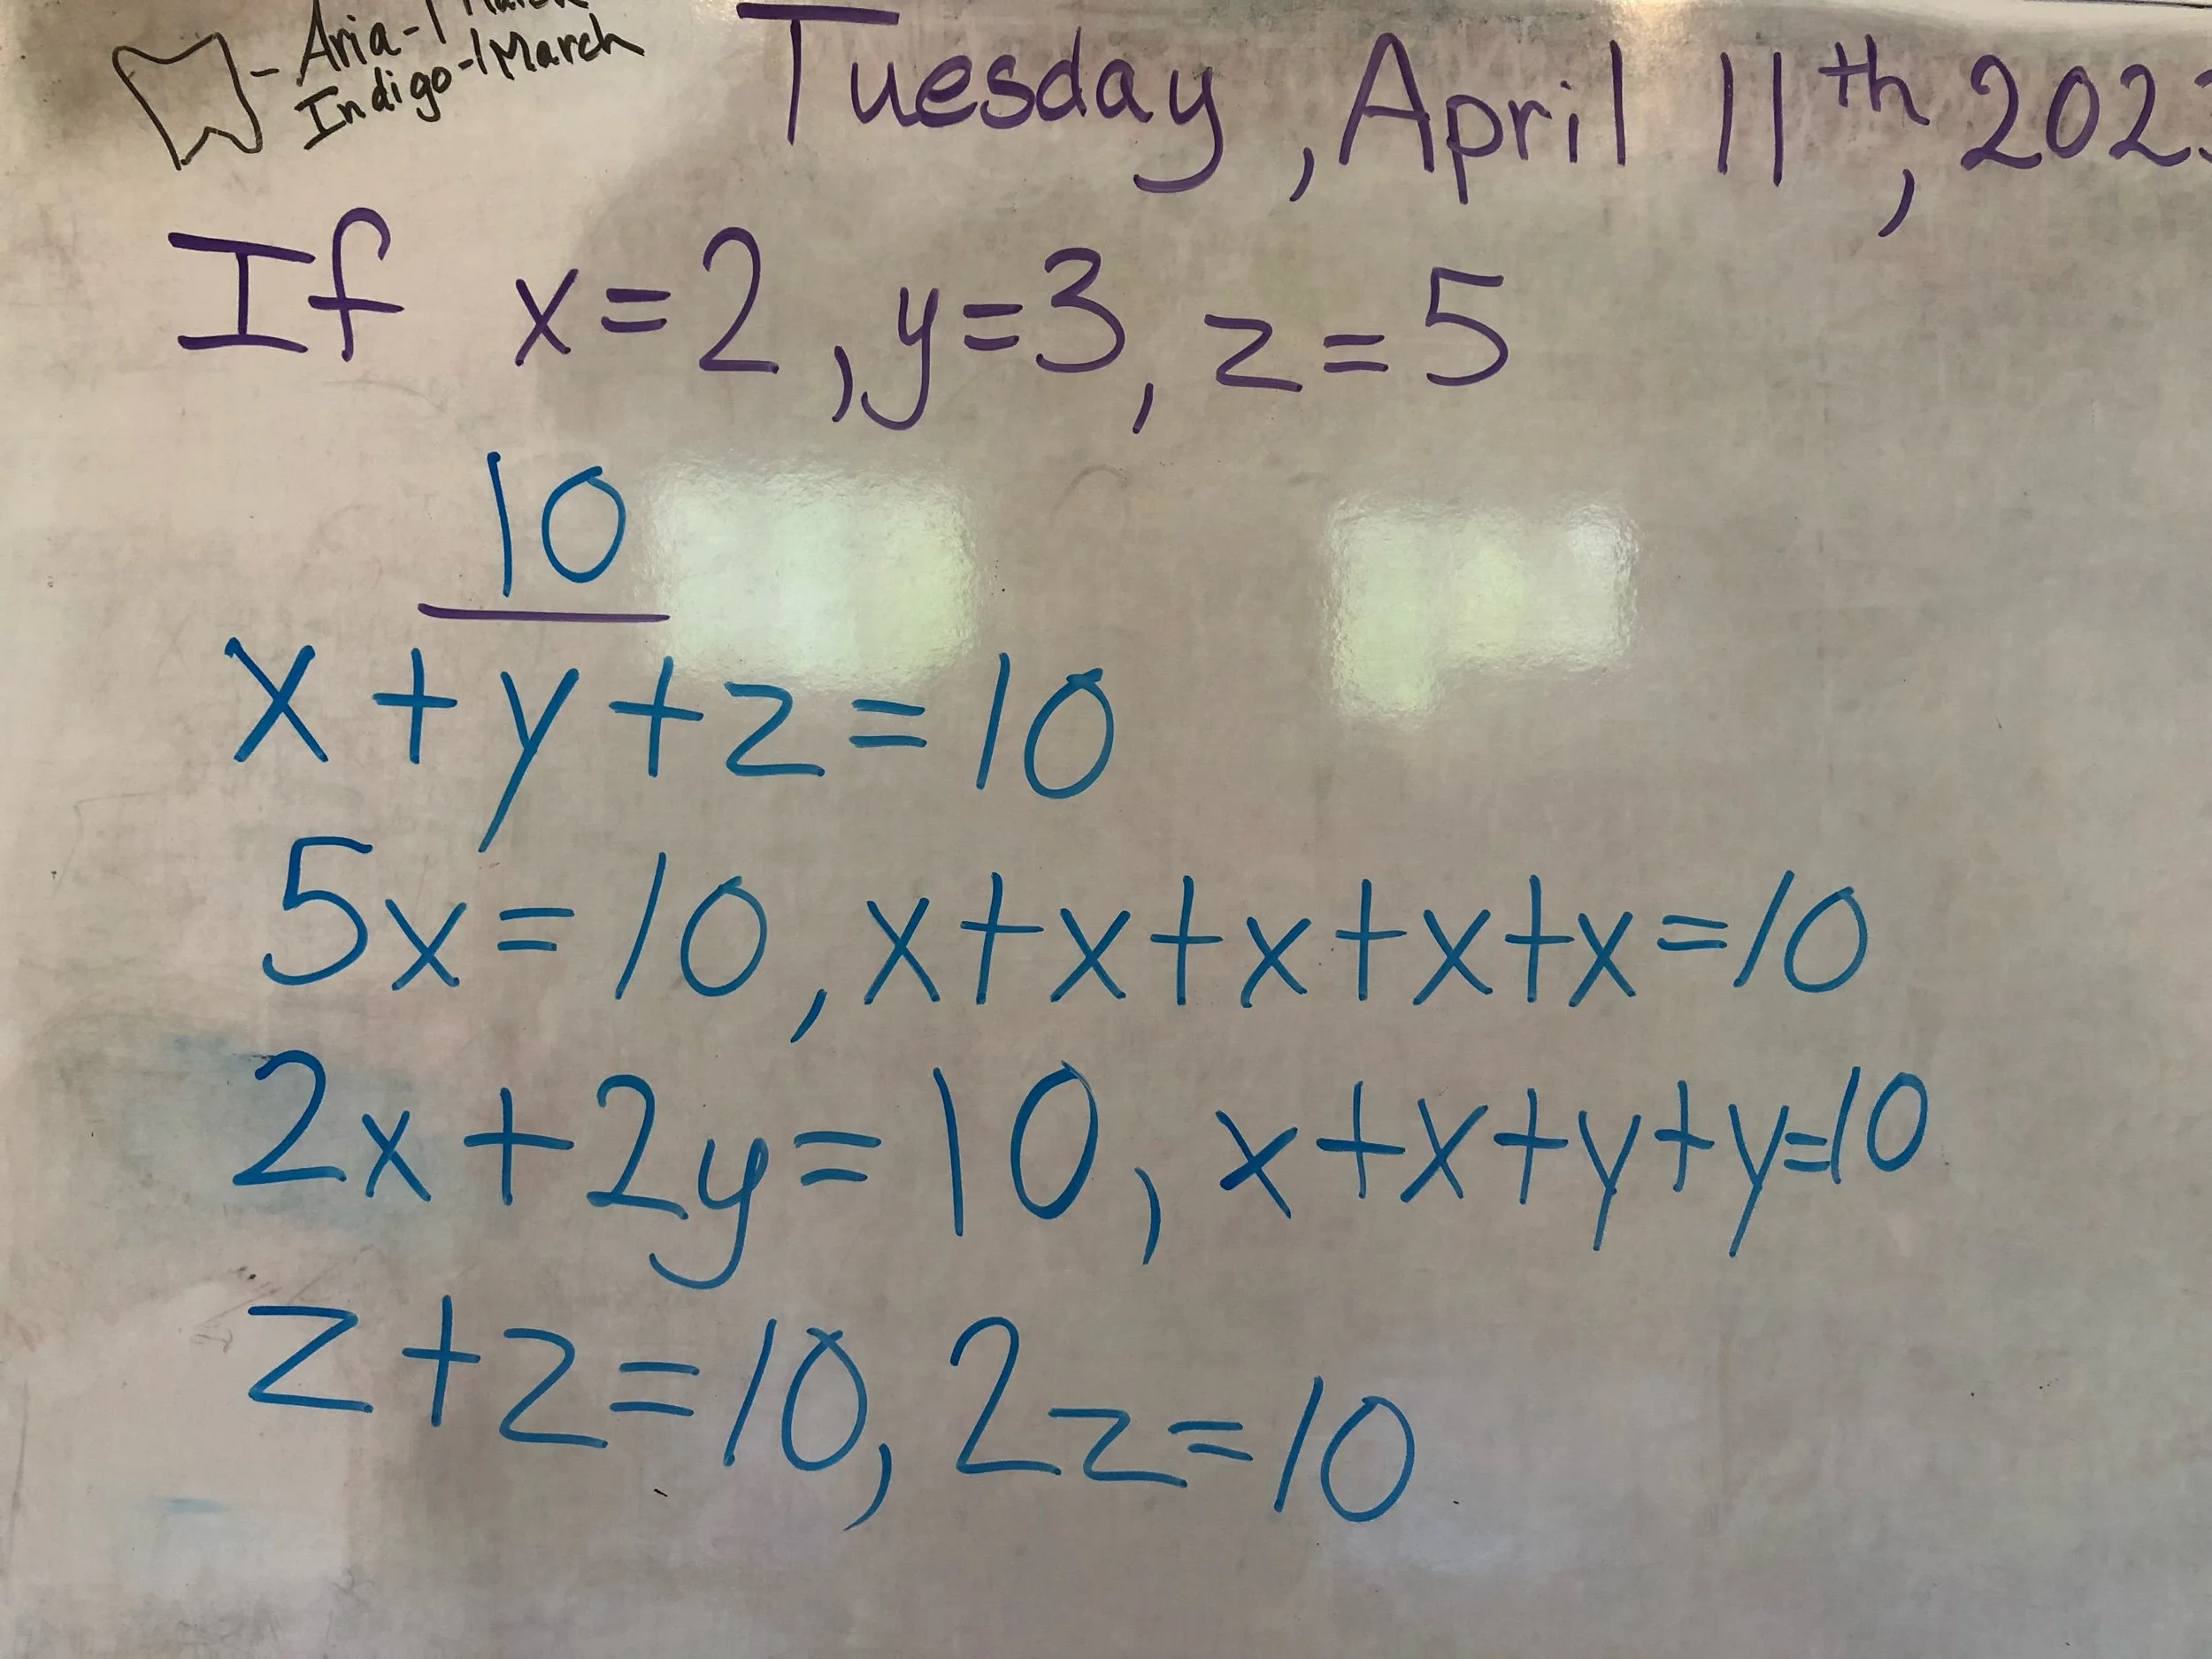 Aria-1
Indigo-1 March
Tuesday, April 11th, 202
If x=2, y=3, z=5
10
x+y+z=10
5x=10, x+x+x+x+x=10
2x+2y=10, x+x+y+y=10
z+z=10, 2z=10